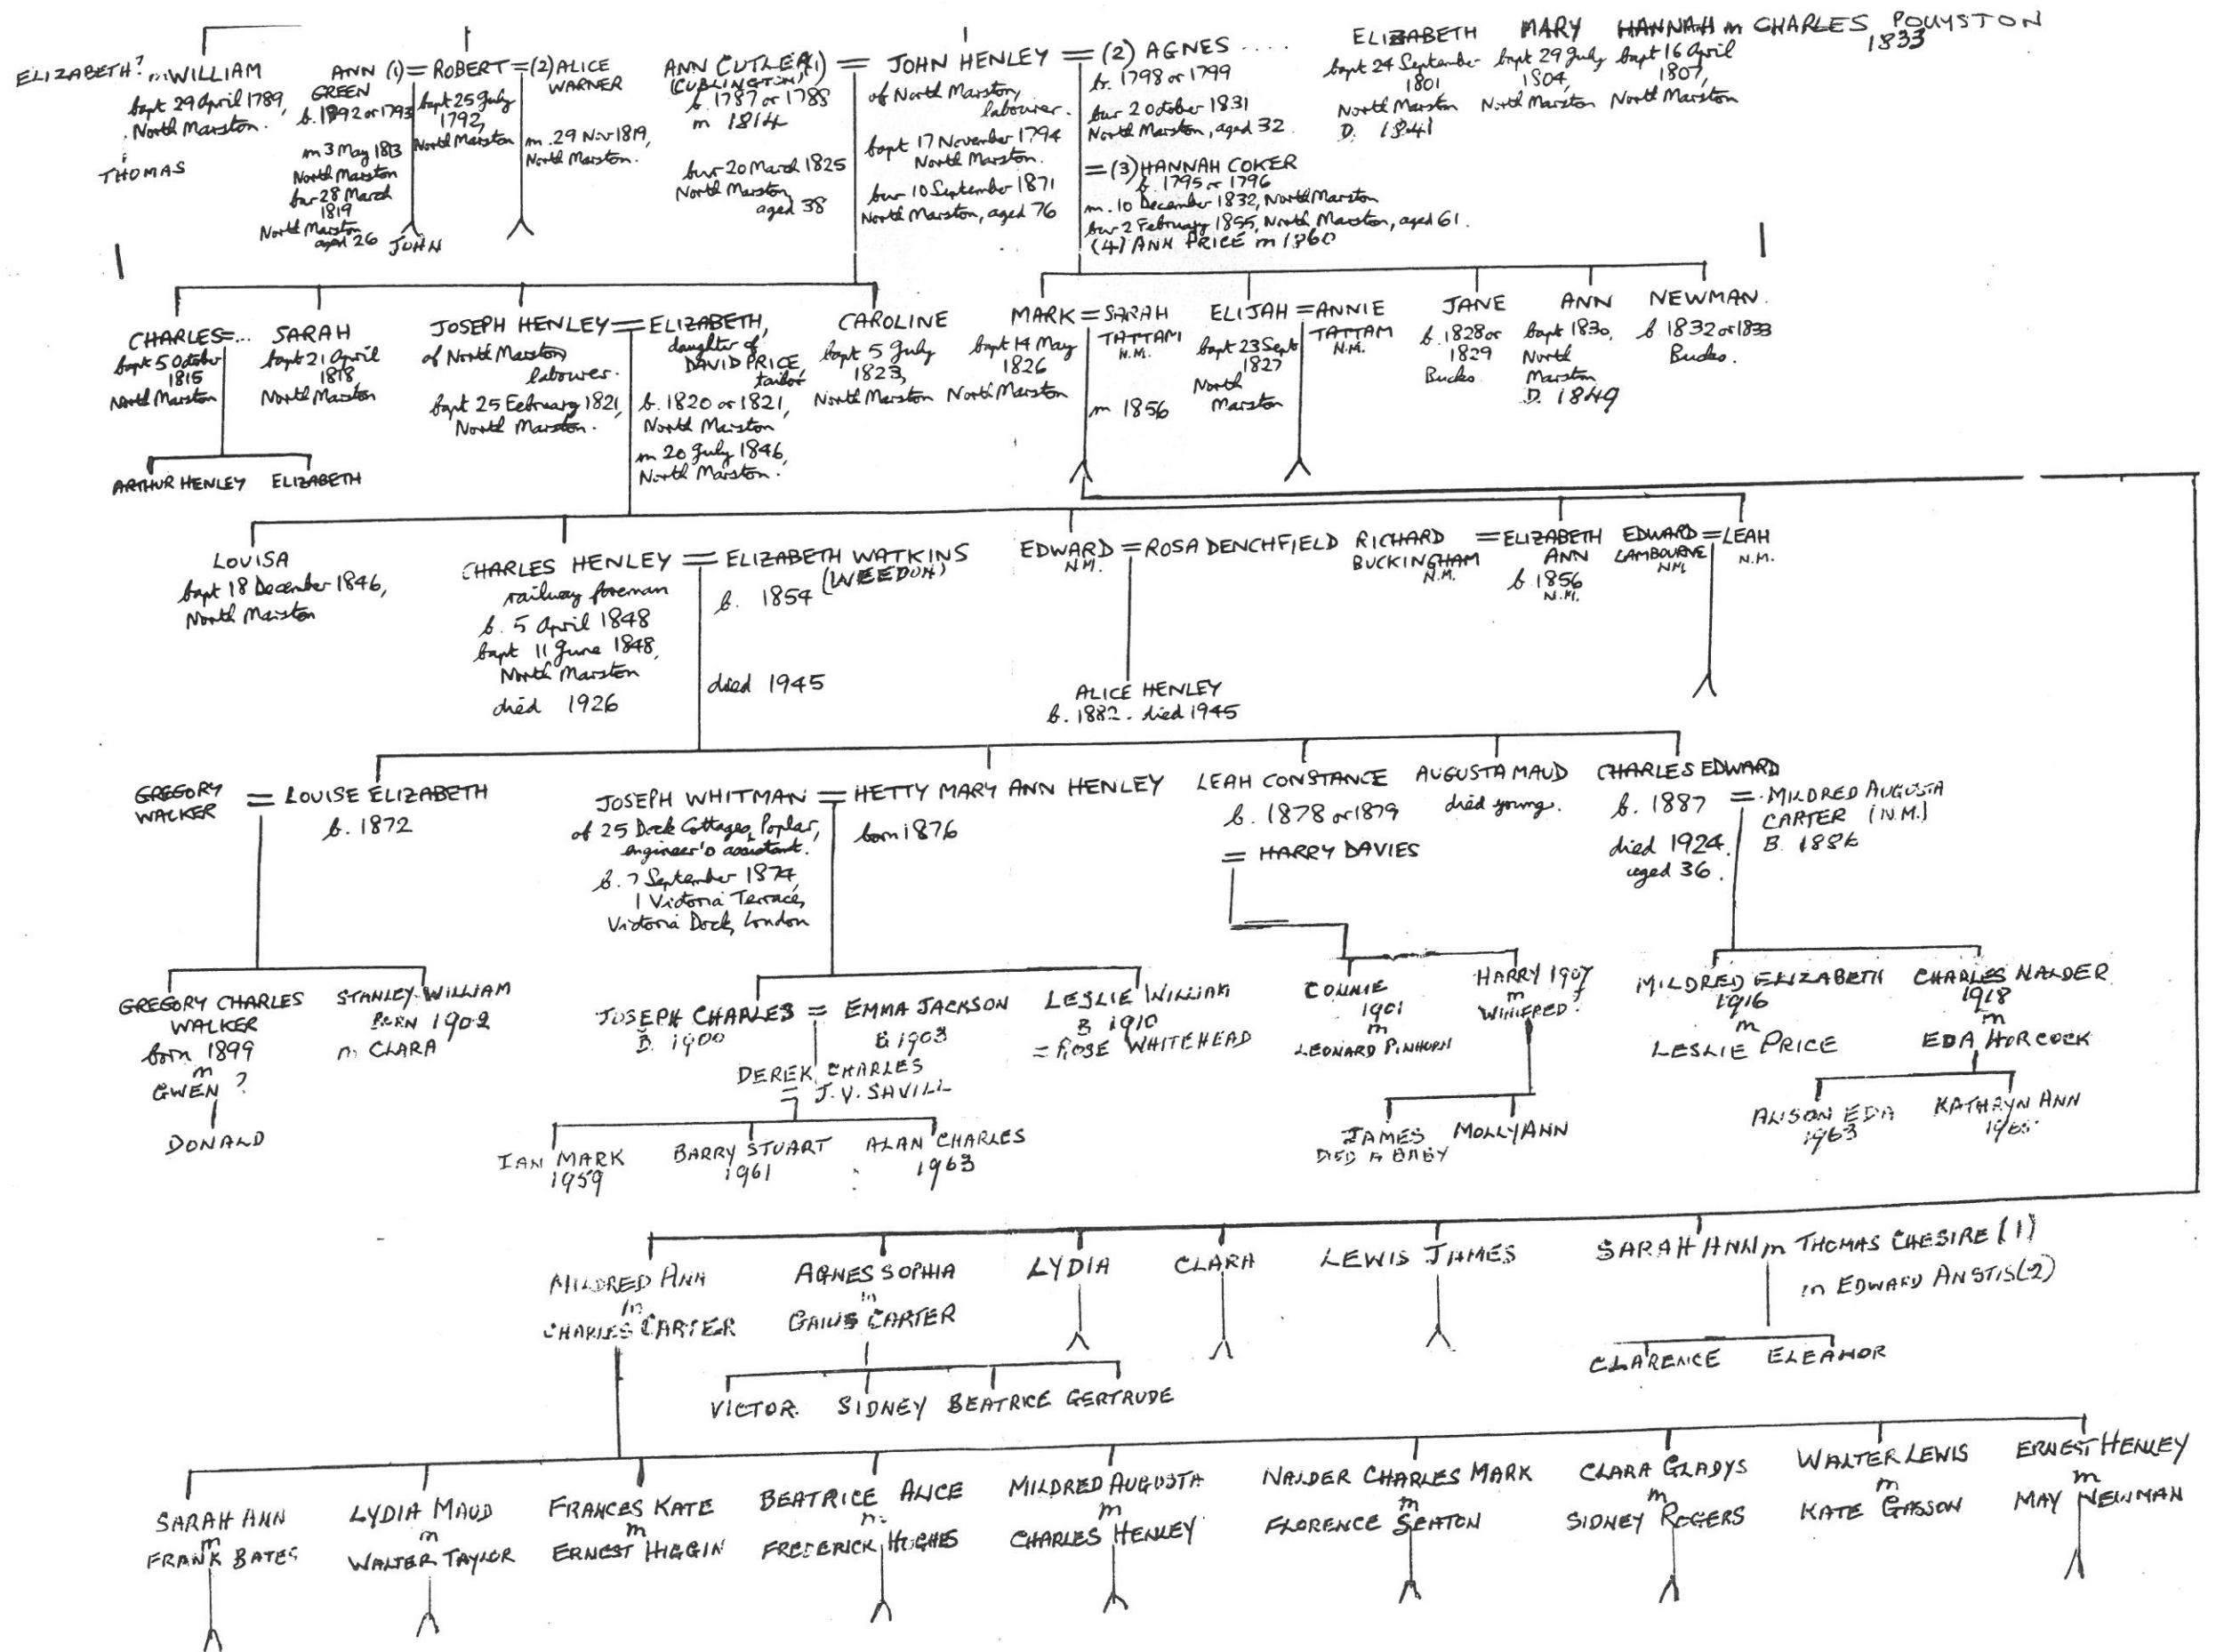 ELIZABETH? m WILLIAM
bapt 29 April 1789,
North Marston.
THOMAS
ANN (1) = ROBERT = (2) ALICE
GREEN
WARNER
b. 1892 or 1793
bapt 25 July
1792,
North Marston
m 3 May 1813
North Marston
bur 28 March
1819
North Marston
aged 26
JOHN
m. 29 Nov 1819,
North Marston.
ANN CUTLER (1) = JOHN HENLEY = (2) AGNES ....
(CUBLINGTON,)
b. 1787 or 1788
m 1814
bur 20 March 1825
North Marston,
aged 38
of North Marston,
labourer.
bapt 17 November 1794
North Marston.
bur 10 September 1871
North Marston, aged 76
b. 1798 or 1799
bur 2 October 1831
North Marston, aged 32.
= (3) HANNAH COKER
b. 1795 or 1796
m. 10 December 1832, North Marston
bur 2 February 1855, North Marston, aged 61.
(4) ANN PRICE m 1860
ELIZABETH
bapt 24 September
1801
North Marston
D. 1841
MARY
bapt 29 July
1804,
North Marston
HANNAH m CHARLES POUYSTON
1833
bapt 16 April
1807,
North Marston
CHARLES = ...
bapt 5 October
1815
North Marston
SARAH
bapt 21 April
1818
North Marston
JOSEPH HENLEY = ELIZABETH,
of North Marston,
labourer.
bapt 25 February 1821,
North Marston.
daughter of
DAVID PRICE,
tailor
b. 1820 or 1821,
North Marston
m 20 July 1846,
North Marston.
CAROLINE
bapt 5 July
1823,
North Marston
MARK = SARAH
TATTAM
N.M.
bapt 14 May
1826
North Marston
m 1856
ELIJAH = ANNIE
TATTAM
N.M.
bapt 23 Sept
1827
North
Marston
JANE
b. 1828 or
1829
Bucks
ANN
bapt 1830,
North
Marston
D. 1849
NEWMAN.
b. 1832 or 1833
Bucks.
ARTHUR HENLEY ELIZABETH
LOUISA
bapt 18 December 1846,
North Marston
CHARLES HENLEY = ELIZABETH WATKINS
(WEEDON)
railway foreman
b. 5 April 1848
bapt 11 June 1848,
North Marston
died 1926
b. 1854
died 1945
EDWARD = ROSA DENCHFIELD
N.M.
ALICE HENLEY
b. 1882. died 1945
RICHARD = ELIZABETH
BUCKINGHAM ANN
N.M.
b. 1856
N.M.
EDWARD = LEAH
LAMBOURNE
N.M.
N.M.
GREGORY = LOUISE ELIZABETH
WALKER
b. 1872
JOSEPH WHITMAN = HETTY MARY ANN HENLEY
of 25 Dock Cottages, Poplar,
engineer's assistant.
b. 7 September 1874,
1 Victoria Terrace,
Victoria Dock, London
born 1876
LEAH CONSTANCE
b. 1878 or 1879
= HARRY DAVIES
AUGUSTA MAUD
died young.
CHARLES EDWARD
b. 1887 = MILDRED AUGUSTA
CARTER (N.M.)
B. 1886
died 1924.
aged 36.
GREGORY CHARLES
WALKER
born 1899
m
GWEN ?
DONALD
STANLEY WILLIAM
BORN 1902
m CLARA
JOSEPH CHARLES = EMMA JACKSON
B. 1900
B 1903
LESLIE WILLIAM
B 1910
= ROSE WHITEHEAD
DEREK CHARLES
= J.V. SAVILL
IAN MARK
1959
BARRY STUART
1961
ALAN CHARLES
1963
CONNIE
1901
m
LEONARD PINHORN
HARRY 1907
m
WINIFRED ?
JAMES
DIED A BABY
MOLLY ANN
MILDRED ELIZABETH
1916
m
LESLIE PRICE
CHARLES NALDER
1918
m
EDA HORCOCK
ALISON EDA
1963
KATHRYN ANN
MILDRED ANN
m
CHARLES CARTER
AGNES SOPHIA
m
GAIUS CARTER
LYDIA
CLARA
LEWIS JAMES
SARAH ANN m THOMAS CHESIRE (1)
m EDWARD ANSTIS (2)
CLARENCE ELEANOR
VICTOR. SIDNEY BEATRICE GERTRUDE
SARAH ANN
m
FRANK BATES
LYDIA MAUD
m
WALTER TAYLOR
FRANCES KATE
m
ERNEST HIGGIN
BEATRICE ALICE
m
FREDERICK HUGHES
MILDRED AUGUSTA
m
CHARLES HENLEY
NALDER CHARLES MARK
m
FLORENCE SEATON
CLARA GLADYS
m
SIDNEY ROGERS
WALTER LEWIS
m
KATE GASSON
ERNEST HENLEY
m
MAY NEWMAN